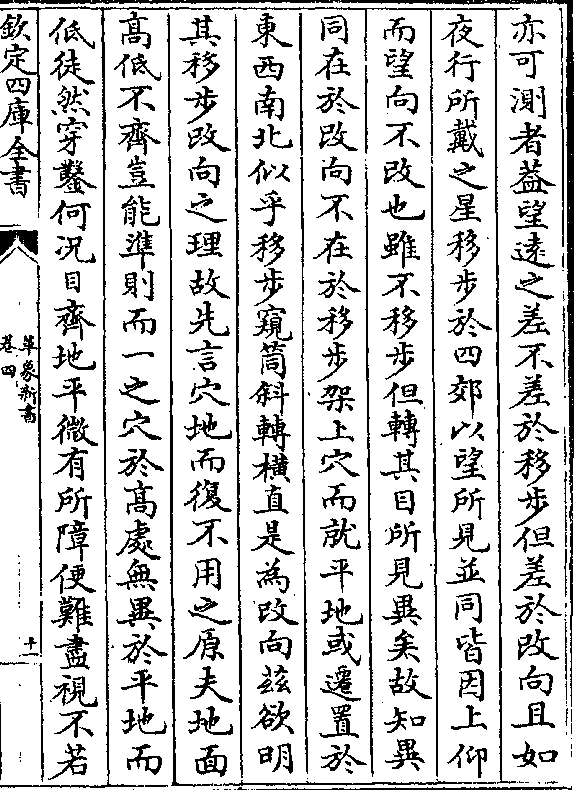 亦可測者葢望逺之差不差於移步但差於改向且如
夜行所戴之星移步於四郊以望所見並同皆因上仰
而望向不改也雖不移步但轉其目所見異矣故知異
同在於改向不在於移步架上穴而就平地或遷置於
東西南北似乎移步窺筒斜轉橫直是為改向兹欲明
其移步改向之理故先言穴地而復不用之原夫地面
髙低不齊豈能準則而一之穴於髙處無異於平地而
低徒然穿鑿何況目齊地平微有所障便難盡視不若
欽定四庫全書
革象新書
卷四
十一